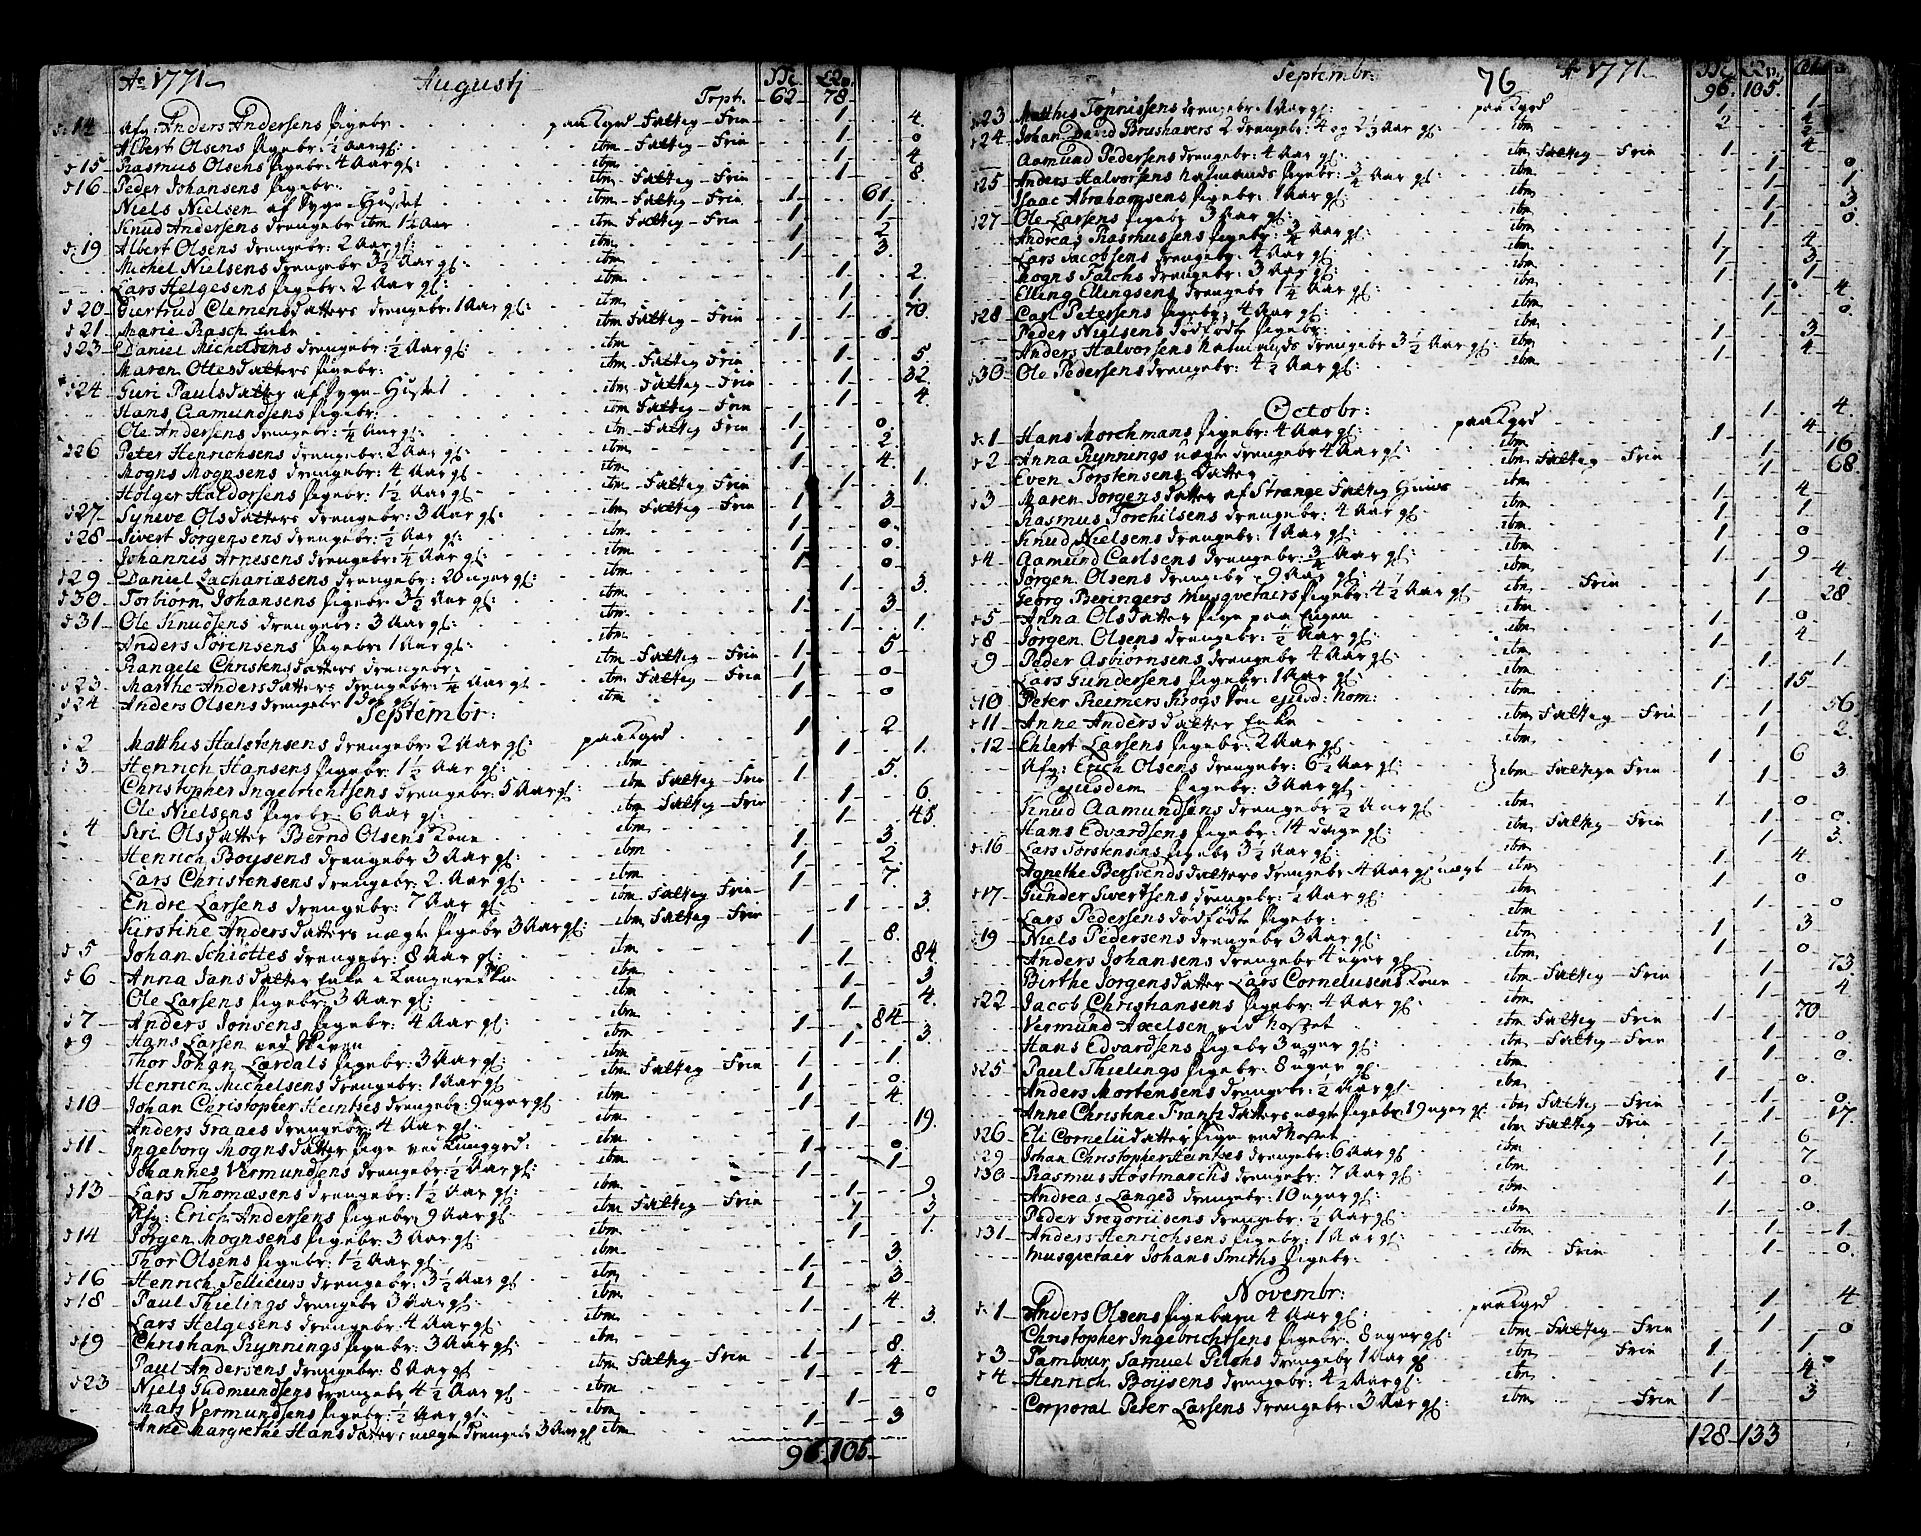 Ao 1771 Augusti Mk. Qv.
Trpt. 62 78
d: 14 Afg: Anders Andersens Pigebr. paa Kgrd Fattig Frie 1 4
Albert Olsens Pigebr: ½ Aar gl: itm Fattig Frie 1 0
d 15 Rasmus Olsens Pigebr: 4 Aar gl: 1 4
d 16 Peder Johansens Pigebr: itm Fattig Frie 1 8
Niels Nielsen af Syge-Huset itm Fattig Frie 1 61
Knud Andersens drengebr itm 1¼ Aar itm Fattig Frie 1 1
d 19 Albert Olsens drengebr: 2 Aar gl: itm 1 2
Michel Nielsens drengebr 3½ Aar gl: itm 1 3
Lars Helgesens Pigebr: 2 Aar gl: itm 1 2
d 20 Giertrud Clemens datters drengebr. 1 Aar gl: itm 1 1
d 21 Marie Rasch Enke itm Fattig Frie 1 70
d 23 Daniel Michelsens drengebr: ½ Aar gl: itm 1 0
Maren Ottesdatters Pigebr: itm Fattig Frie 1 5
d 24 Guri Paulsdatter af Syge-Huset itm Fattig Frie 1 32
Hans Aamundsens Pigebr: itm Fattig Frie 1 4
Ole Andersens drengebr: ¼ Aar gl: itm Fattig Frie 1 0
d 26 Peter Henrichsens drengebr: 2 Aar gl: itm 1 2
Mogns Mognsens drengebr: 4 Aar gl: itm 1 4
Holger Haldorsens Pigebr: 1½ Aar gl: itm Fattig Frie 1 1
d 27 Syneve Olsdatters drengebr: 3 Aar gl: itm Fattig Frie 1 3
d 28 Sivert Jorgensens drengebr: ½ Aar gl: itm 1 0
Johannis Arnesens drengebr: ¼ Aar gl: itm 1 0
d 29 Daniel Zachariasens drengebr: 20 uger gl: itm 1 0
d 30 Torbiørn Johansens Pigebr 3½ Aar gl: itm 1 3
d 31 Ole Knudsens drengebr: 3 Aar gl: itm 1 3
Anders Sørensens Pigebr: 1 Aar gl: itm 1 1
Rangele Christensdatters drengebr: itm Fattig Frie 1 5
d 23 Marthe Andersdatters drengebr: ¼ Aar gl itm Fattig Frie 1 0
d 24 Anders Olsens drengebr 1 Dag gl: itm 1 0
Septembr:
d 2 Matthis Halstensens drengebr: 2 Aar gl: paa Kgrd 1 2
d 3 Henrich Hansens Pigebr: 1½ Aar gl: itm 1 1
Christopher Ingebrichtsens drengebr: 5 Aar gl: itm Fattig Frie 1 5
Ole Nielsens Pigebr: 6 Aar gl: itm Fattig Frie 1 6
d 4 Siri Olsdatter Bernd Olsens Kone itm 1 45
Henrich Boysens drengebr 3 Aar gl: itm 1 3
Lars Christensens drengebr: 2 Aar gl: itm 1 2
Endre Larsens drengebr: 7 Aar gl: itm Fattig Frie 1 7
Kirstine Andersdatters uægte Pigebr 3 Aar gl: itm Fattig Frie 1 3
d 5 Johan Schiøttes drengebr: 8 Aar gl: itm 1 8
d 6 Anna Jansdatter Enke i itm 1 84
Ole Larsens Pigebr: 3 Aar gl: itm 1 3
d 7 Anders Jonsens Pigebr: 4 Aar gl: itm 1 4
d 9 Hans Larsen ved itm 1 84
Thor Johan Lærdals Pigebr: 3 Aar gl: itm 1 3
Henrich Michelsens drengebr: 1 Aar gl itm Fattig Frie 1 1
d 10 Johan Christopher Heintzes drengebr: 9 uger gl itm 1 0
Anders Graaes drengebr: 4 Aar gl: itm 1 4
d 11 Ingeborg Mognsdatter Pige ved Kongsgrd: itm 1 19
Johannes Vermundsens drengebr: ½ Aar gl: itm 1 0
d 13 Lars Thomæsens drengebr: 1½ Aar gl: itm 1 1
Afg: Erich Andersens Pigebr: 9 Aar gl: itm Fattig Frie 1 9
d 14 Jørgen Mognsens Pigebr: 3 Aar gl: itm 1 3
Thor Olsens Pigebr: 1½ Aar gl: itm 1 1
d 16 Henrich Tellieurs drengebr: 3½ Aar gl itm 1 3
d 18 Paul Thielings drengebr 3 Aar gl: itm 1 3
Lars Helgesens drengebr: 4 Aar gl: itm 1 4
d 19 Christian Rynnings Pigebr: 3 Aar gl: itm 1 3
Paul Andersens drengebr: 8 Aar gl itm Fattig Frie 1 8
d 23 Niels Gudmundsens drengebr 4½ Aar gl: itm 1 4
Matz Vermundsens Pigebr: ½ Aar gl: itm 1 0
Anne Margrethe Hansdatters uægte drengebr 3 Aar gl itm 1 3
96 105
Septembr: 76 Ao 1771 Mk. Qv.
96 105
d 23 Matthis Tønnissens drengebr. 1 Aar gl: paa Kgrd 1 1
d 24 Johan David Brushavers 2 drengebr: 4 og 2½ Aar gl: itm 2
Aamund Pedersens drengebr: 4 Aar gl: itm Fattig Frie 1 4
d 25 Anders Halvorsens Pigebr: ¾ Aar gl: itm 1 0
Isaac Abrahamsens Pigebr: 1 Aar gl: itm 1 1
d 27 Ole Larsens Pigebr 3 Aar gl: itm 1 3
Andreas Rasmussens Pigebr: ¾ Aar gl: itm 1 0
Lars Jacobsens drengebr: 4 Aar gl: itm 1 4
Mogns Falchs drengebr: 3 Aar gl: itm 1 3
Elling Ellingsens drengebr 1¼ Aar gl: itm 1 1
d 28 Carl Petersens Pigebr: 4 Aar gl: itm 1 4
Peder Nielsens dødfødte Pigebr: itm 1 0
Anders Halvorsens drengebr 3½ Aar gl: itm 1 3
d 30 Ole Pedersens drengebr: 4½ Aar gl: itm 1 4
Octobr:
d 1 Hans Morchmans Pigebr: 4 Aar gl: paa Kgrd 1 4
d 2 Anna Rynnings uægte drengebr 4 Aar gl: itm 1 4
Even Torstensens Datter itm Fattig Frie 1 16
d 3 Maren Jorgensdatter af Strange Fattig Huus itm 1 68
Rasmus Torchilsens drengebr: 4 Aar gl: itm 1 4
Knud Nielsens drengebr: 1 Aar gl: itm 1 1
d 4 Aamund Carlsens drengebr: ¾ Aar gl: itm 1 0
Jørgen Olsens drengebr: 9 Aar gl: itm 1 9
Georg Beringers Musqvetairs Pigebr: 4½ Aar gl itm Frie 1 4
d 5 Anna Olsdatter Pige paa Engen itm 1 28
d 8 Jorgen Olsens drengebr: ½ Aar gl: itm 1 0
d 9 Peder Asbiørnsens drengebr 4 Aar gl: itm 1 4
Lars Gundersens Pigebr: 1 Aar gl: itm 1 1
d 10 Peter Reimers Krogs Søn ejusd: nom: itm 1 15
d 11 Anne Andersdatter Enke itm Fattig Frie 1 56
d 12 Ehlert Larsens Pigebr: 2 Aar gl: itm 1 2
Afg: Erich Olsens drengebr: 6½ Aar gl: } itm Fattige Frie 1 6
ejusdem Pigebr: 3 Aar gl: 1 3
Knud Aamundsens drengebr ½ Aar gl: itm 1 0
Hans Edvardsens Pigebr: 14 dage gl: itm Fattig Frie 1 0
d 16 Lars Torstensens Pigebr 3½ Aar gl: itm 1 3
Agnethe Bersvendsdatters drengebr 4 Aar gl: uægt itm 1 4
d 17 Gunder Sivertsens drengebr: ½ Aar gl: itm 1 0
Lars Pedersens dødfødte Pigebr: itm 1 0
d 19 Niels Pedersens drengebr 3 Aar gl: itm 1 3
Anders Johansens drengebr 4 uger gl: itm 1 0
Birthe Jorgensdatter Lars Corneliusens Kone itm Fattig Frie 1 73
d 22 Jacob Christiansens Pigebr: 4 Aar gl: itm 1 4
Vermund Axelsen ved Hosp:et itm Fattig Frie 1 70
Hans Edvardsens Pigebr 3 uger gl: itm Fattig Frie 1 0
d 25 Paul Thielings Pigebr: 8 uger gl: itm 1 0
Anders Mortensens drengebr: ½ Aar gl: itm 1 0
Anne Christine Frantzdatters uægte Pigebr: 19 uger gl: itm Fattig Frie 1 0
d 26 Eli Corneliidatter Pige ved Hosp:et itm Fattig Frie 1 17
d 29 Johan Christopher Heintzes drengebr: 6 Aar gl: itm 1 6
d 30 Rasmus Høstmarchs drengebr: 7 Aar gl: itm 1 7
Andreas Langes drengebr: 10 uger gl: itm 1 0
Peder Gregoriisens drengebr: ½ Aar gl: itm 1 0
d 31 Anders Henrichsens Pigebr: 1 Aar gl: itm 1 1
Musqvetair Johans Smiths Pigebr: itm Frie 1 0
Novembr:
d: 1 Anders Olsens Pigebarn 4 Aar gl: paa Kgrd 1 4
Christopher Ingebrichtsens Pigebr: 8 uger gl: itm Fattig Frie 1 0
d 3 Tambour Samuel Pilohs drengebr 1 Aar gl itm Frie 1 1
d 4 Henrich Boysens drengebr: 4½ Aar gl: itm 1 4
Corporal Peter Larsens drengebr: 3 Aar gl: itm Frie 1 3
128 133